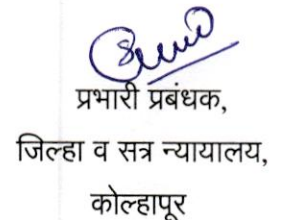 प्रभारी प्रबंधक,
जिल्हा व सत्र न्यायालय,
कोल्हापूर